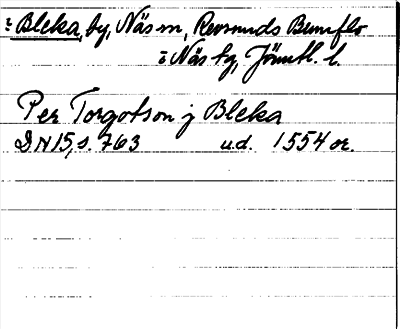 : Bleka, by, Näs sn, Revsunds
: Näs tg, Jämtl. l.
Per Torgotson j Bleka
DN 15, s. 763 u.d. 1554 or.